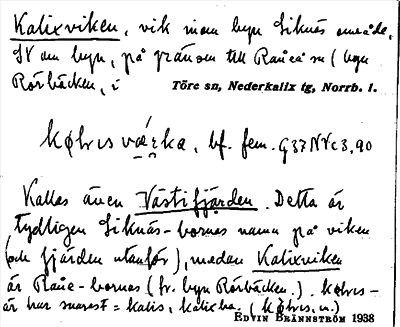 Kalixviken, vik inom byn Siknäs område,
SV om byn, på gränsen till Råneå sn (byn
Rörbäcken, i Töre sn, Nederkalix tg, Norrb. l.
kølɩsvǽrka, bf. fem.
Kallas även Västifjärden. Detta är
tydligen Siknäs-bornas namn på viken
(och fjärden utanför), medan Kalixviken
är Råne-bornas (fr. byn Rörbäcken.).
är har snarast = kalis, kalixba.
EDVIN BRÄNNSTRÖM 1938